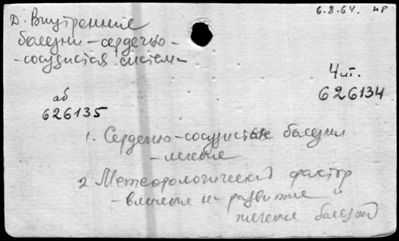 Д. Внутренние
6.8.64. нр
болезни – сердечно –
– сосудистая систем–
Чит.
626134
аб
626135
1. Сердечно-сосудистые болезни
– лечение
2 Метеорологический фактор
– влияние на развитие и
течение болезней